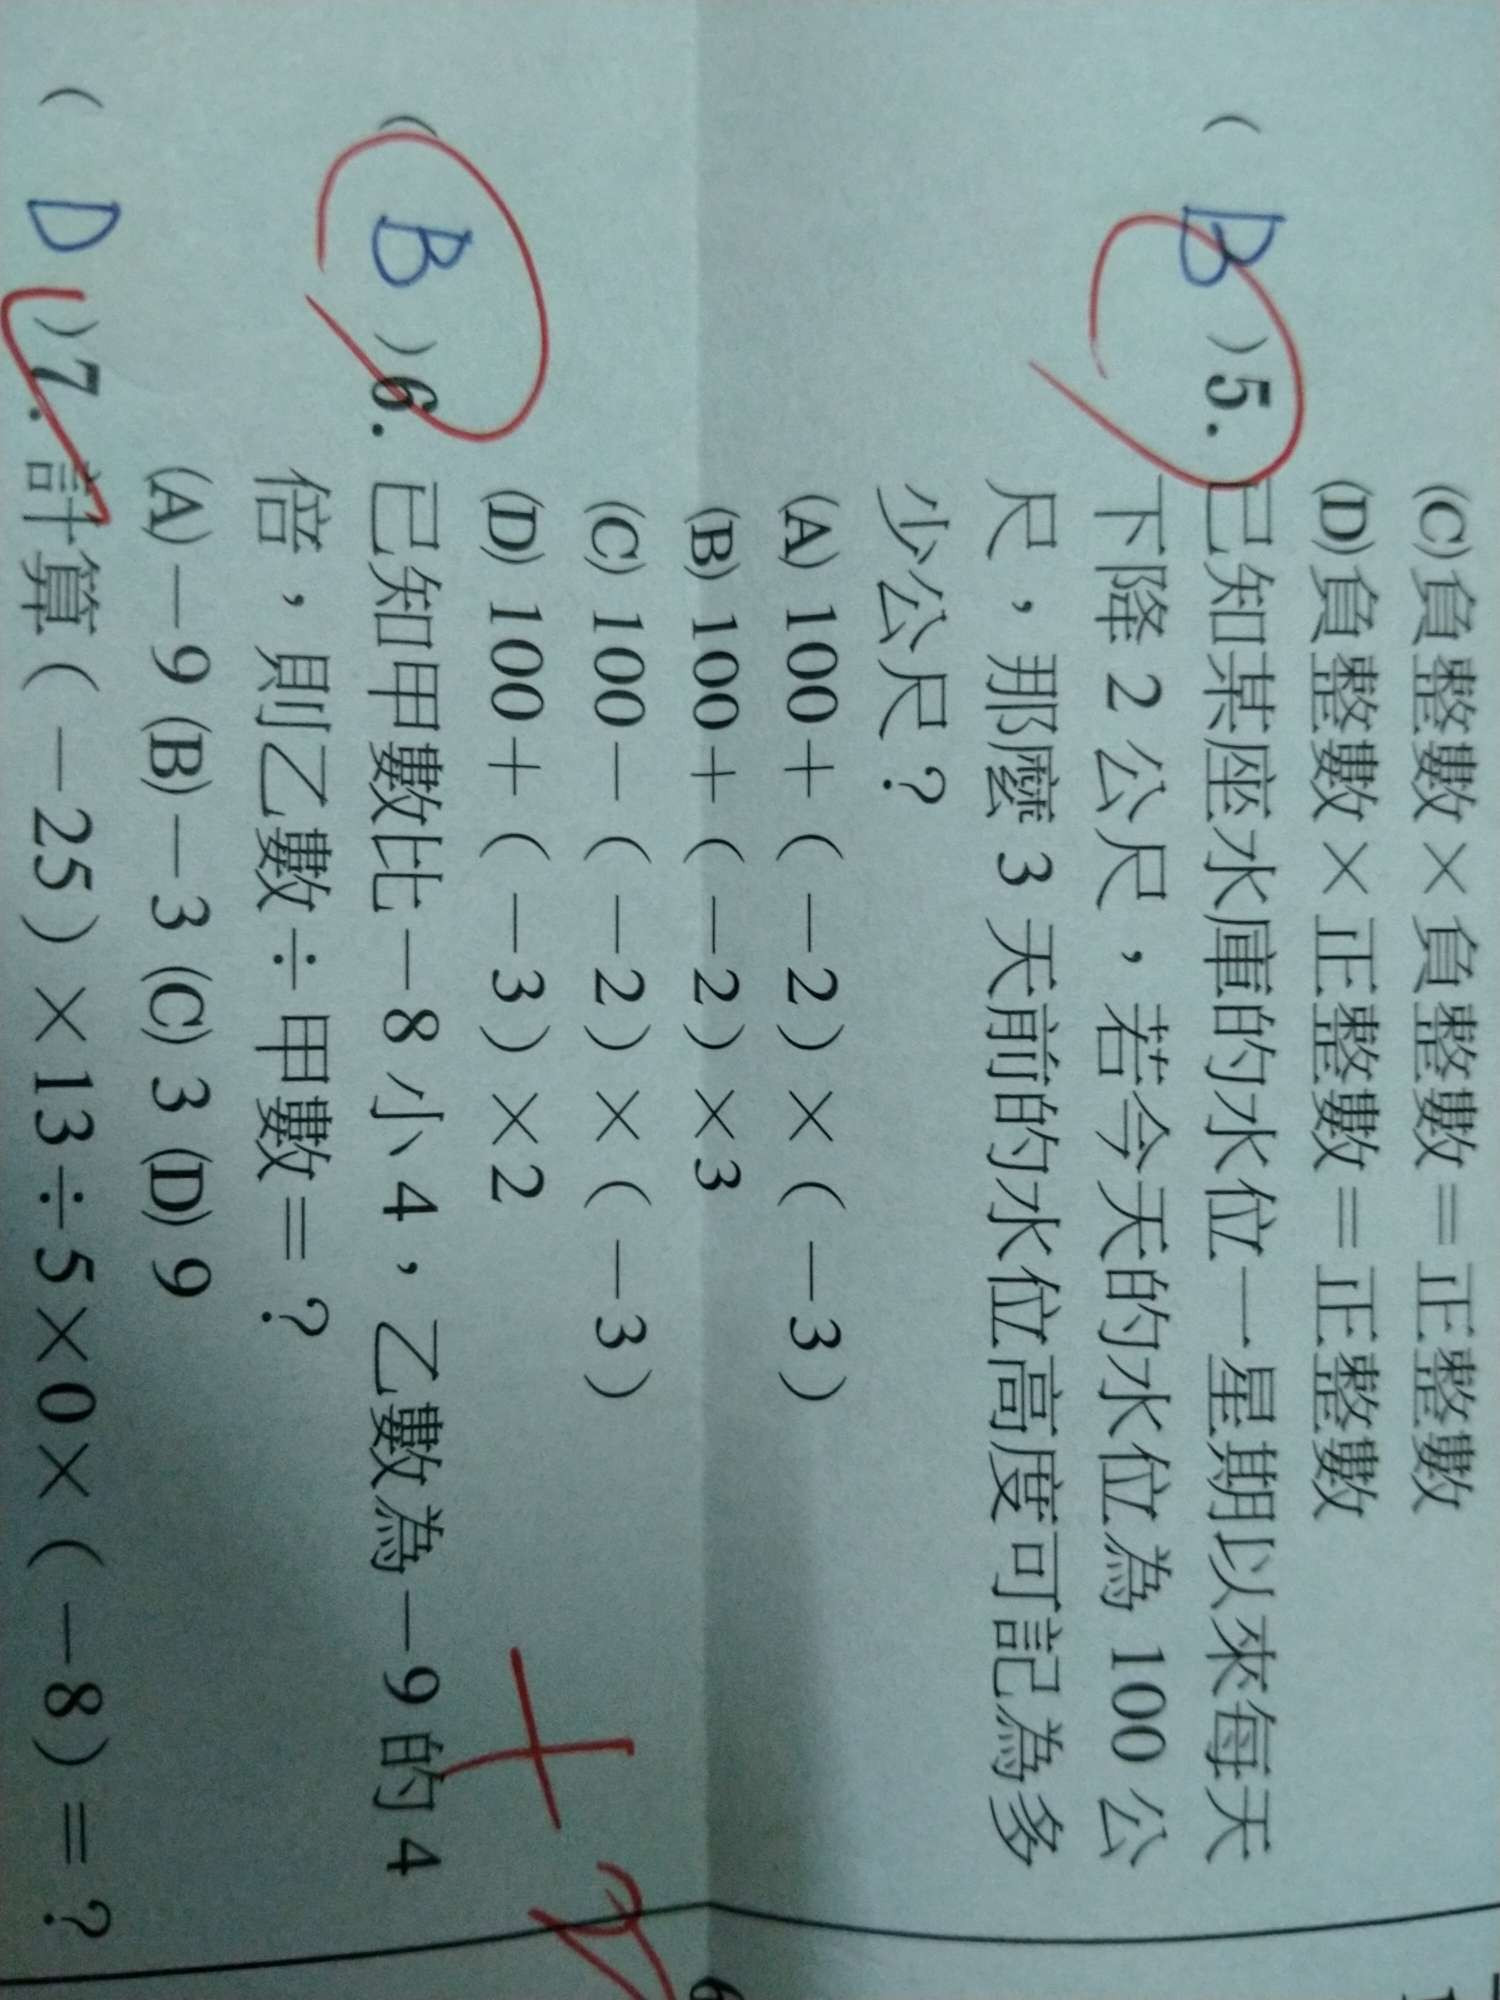 (C)負整數×負整數＝正整數
(D)負整數×正整數＝正整數
( B )5. 已知某座水庫的水位一星期以來每天
下降 2 公尺，若今天的水位為 100 公
尺，那麼 3 天前的水位高度可記為多
少公尺？
(A) 100＋(－2)×(－3)
(B) 100＋(－2)×3
(C) 100－(－2)×(－3)
(D) 100＋(－3)×2
( B )6. 已知甲數比－8 小 4，乙數為－9 的 4
倍，則乙數÷甲數＝？
(A)－9 (B)－3 (C) 3 (D) 9
( D )7. 計算(－25)×13÷5×0×(－8)＝？